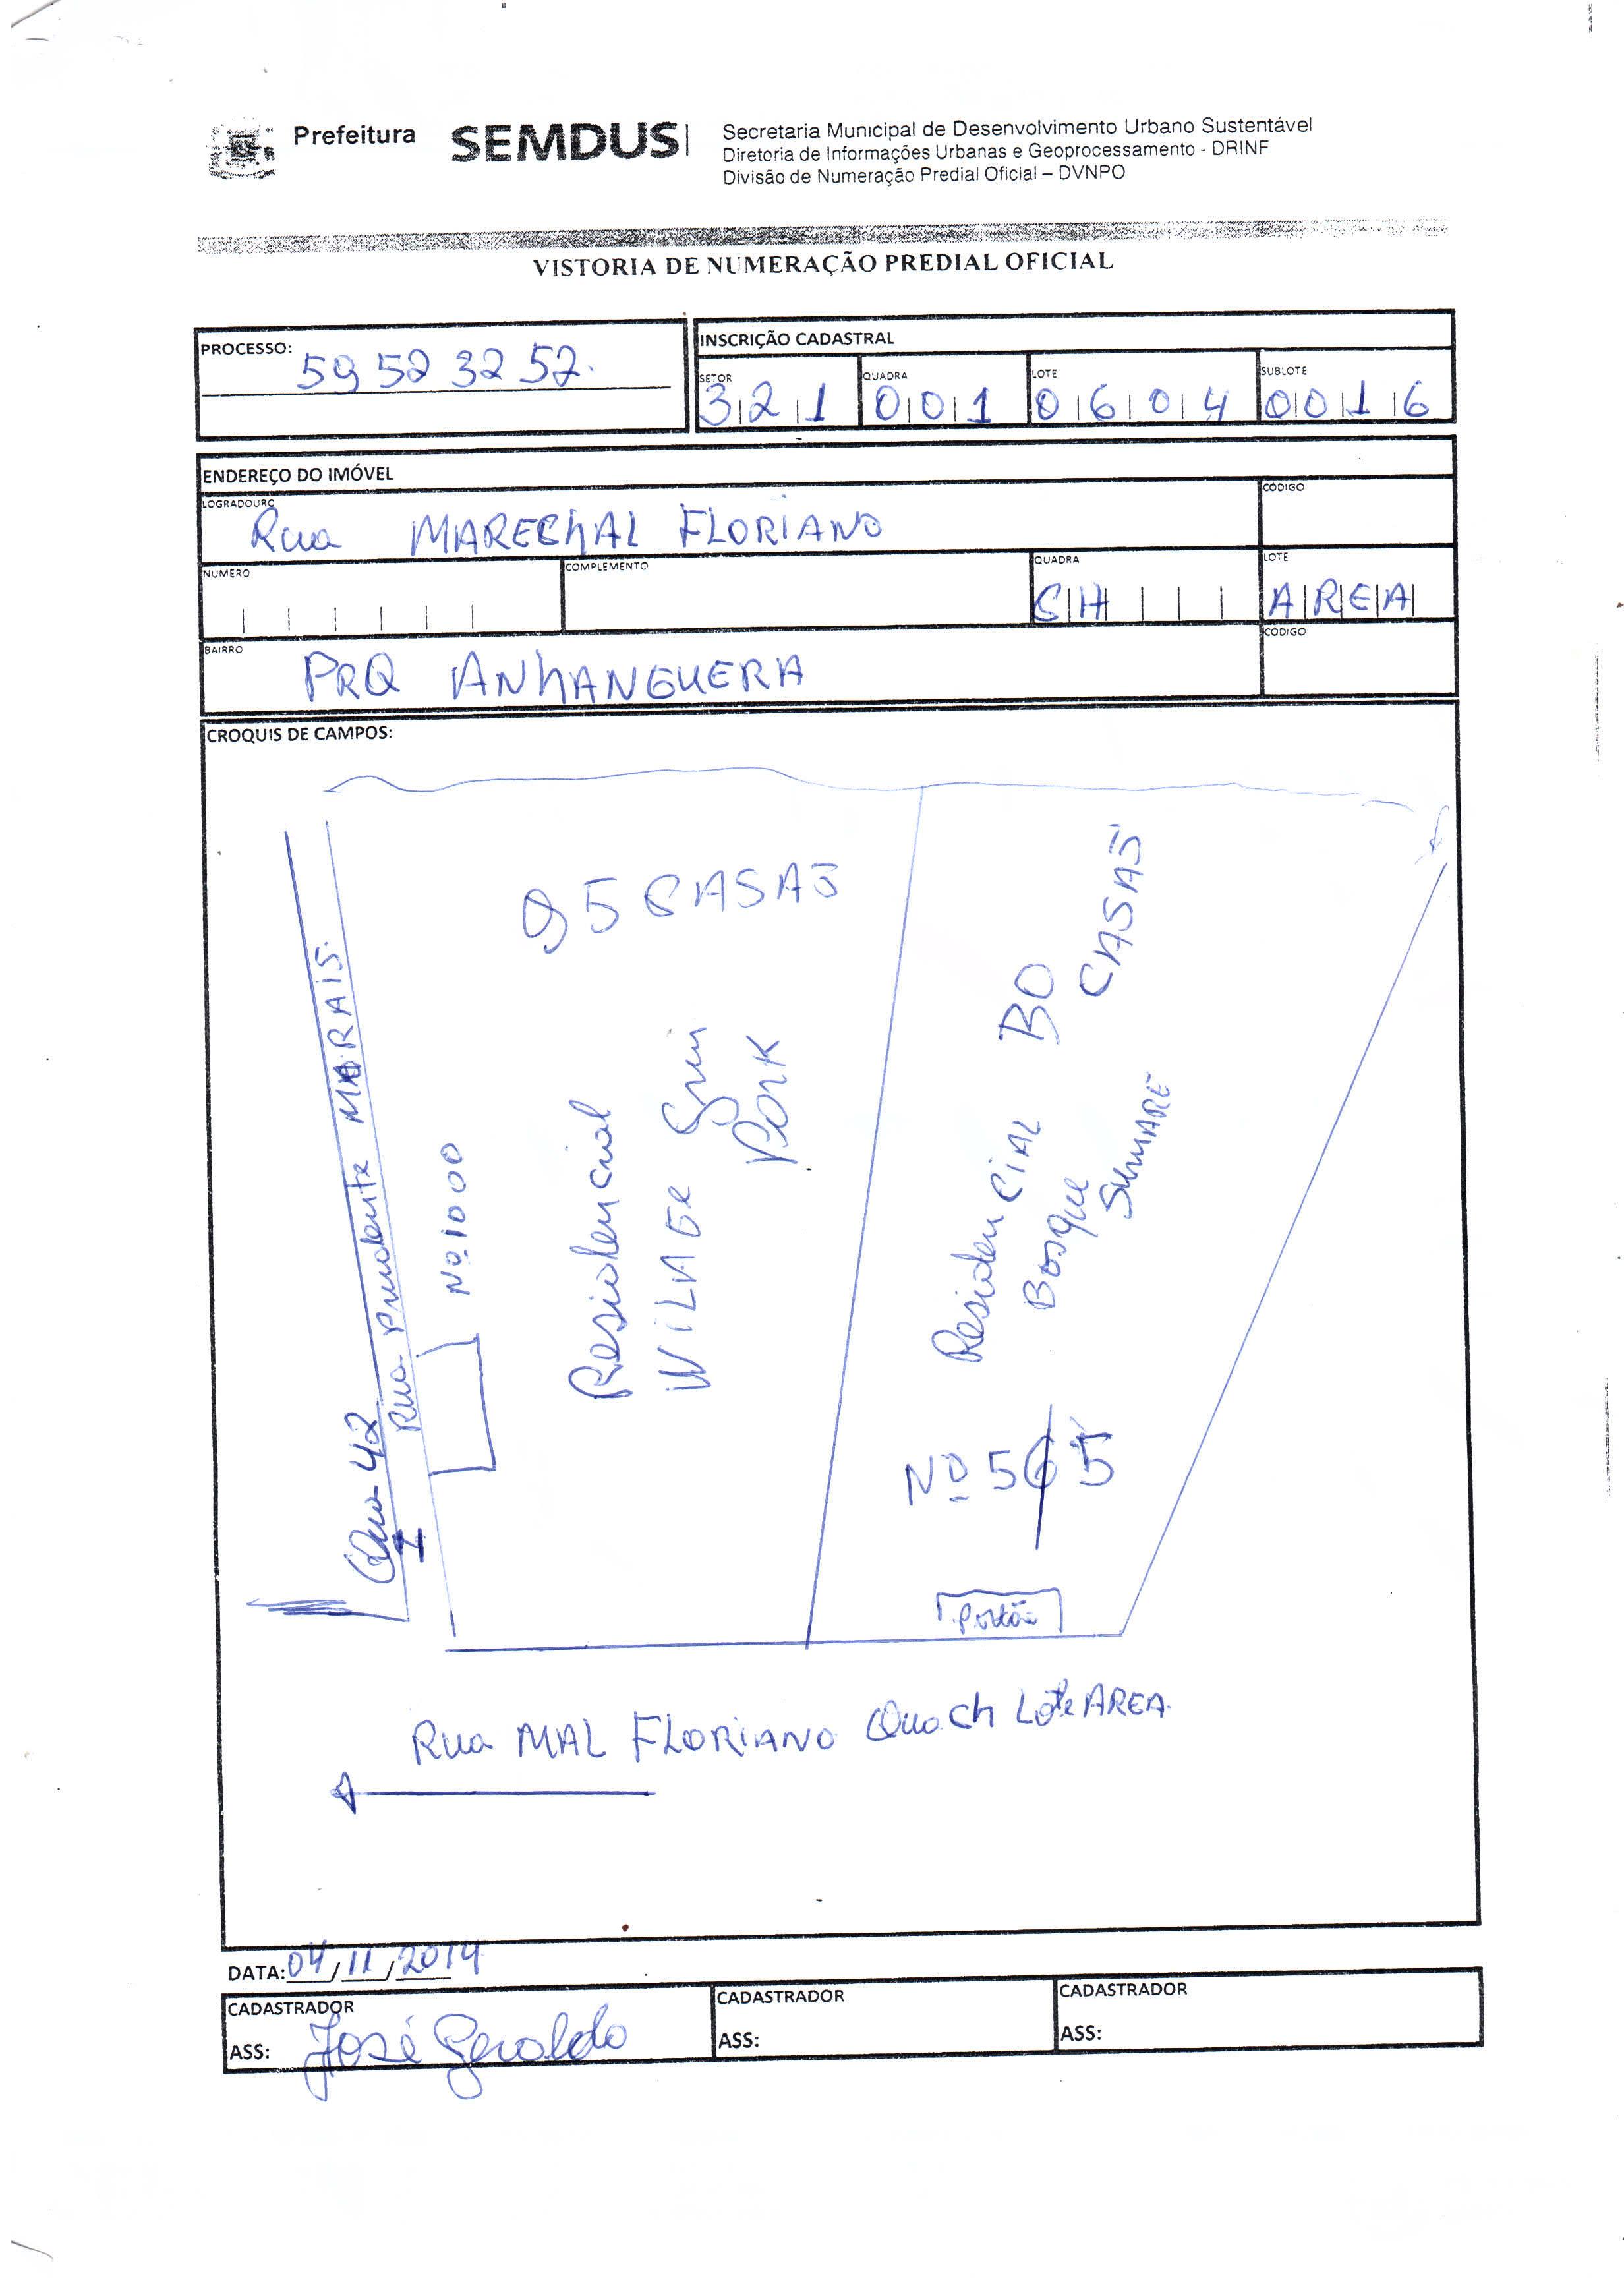 Prefeitura SEMDUS
Secretaria Municipal de Desenvolvimento Urbano Sustentável
Diretoria de Informações Urbanas e Geoprocessamento - DRINF
Divisão de Numeração Predial Oficial – DVNPO
VISTORIA DE NUMERAÇÃO PREDIAL OFICIAL
PROCESSO: 59 52 32 52.
INSCRIÇÃO CADASTRAL
SETOR QUADRA LOTE SUBLOTE
321 001 0604 0016
ENDEREÇO DO IMÓVEL
LOGRADOURO CÓDIGO
Rua MARECHAL FLORIANO
NUMERO COMPLEMENTO QUADRA LOTE
CH AREA
BAIRRO CÓDIGO
PRQ ANHANGUERA
CROQUIS DE CAMPOS:
95 CASAS
Residencial
WILAGE
Park
Nº 1000
Rua Prudente MORAIS.
Qua 42
Residencial
Bosque
SUMARE
CASAS
Nº 565
Portão
Rua MAL FLORIANO Qua Ch Lote AREA
DATA: 04/11/2014
CADASTRADOR CADASTRADOR CADASTRADOR
ASS: José Geraldo ASS: ASS: